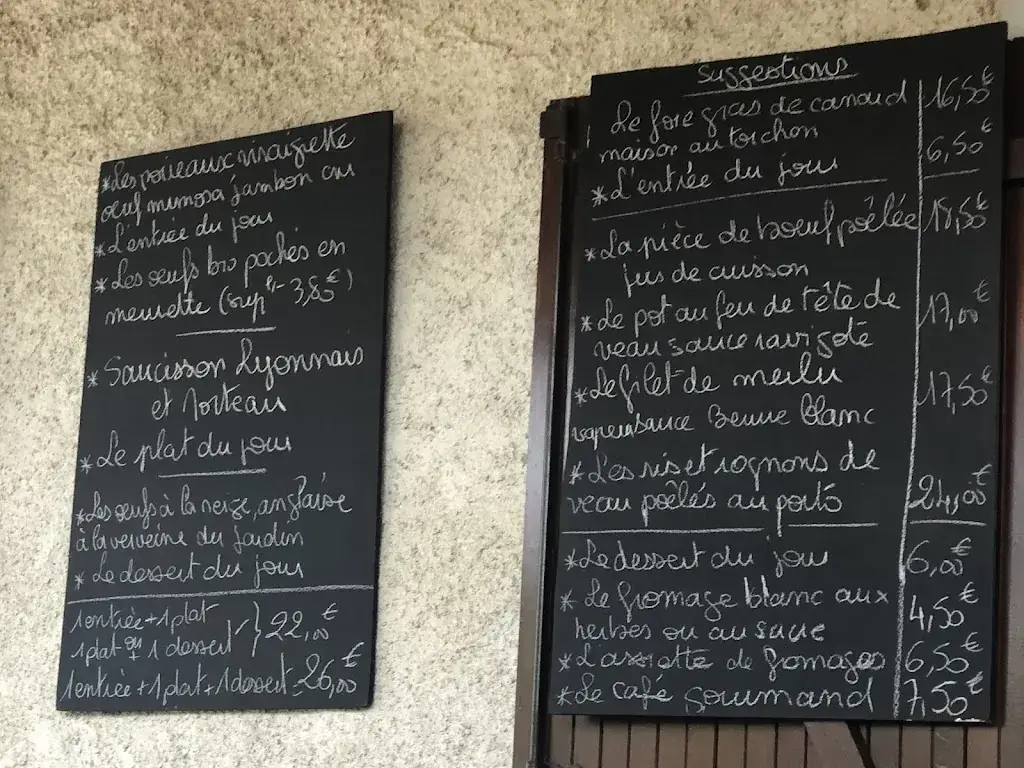 *Les poireaux vinaigrette
œuf mimosa jambon cru
*L'entrée du jour
*Les œufs bio pochés en
meurette (sup 3,85€)
*Saucisson Lyonnais
et Morteau
*Le plat du jour
*Les œufs à la neige, anglaise
à la verveine du jardin
* Le dessert du jour
1 entrée + 1 plat
ou
1 plat + 1 dessert } 22,00€
1 entrée + 1 plat + 1 dessert = 26,00€
Suggestions
Le foie gras de canard 16,50€
maison au torchon
*L'entrée du jour 6,50€
*La pièce de boeuf poêlée 18,50€
jus de cuisson
*Le pot au feu de tête de 17,00€
veau sauce ravigote
*Le filet de merlu 17,50€
vapeur sauce Beurre blanc
*Les ris et rognons de
veau poêlés au porto 24,00€
*Le dessert du jour 6,00€
* Le fromage blanc aux 4,50€
herbes ou au sucre
*L'assiette de fromages 6,50€
*Le café gourmand 7,50€